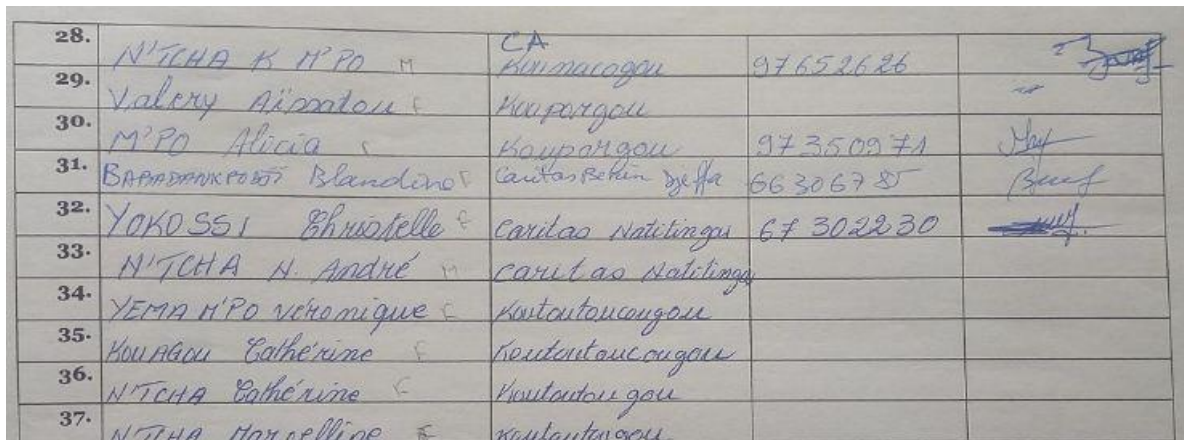 28. N'TCHA K M'PO M CA Koumacogou 97652626
29. Valery Aïssatou F Koupargou
30. M'PO Alicia F Koupargou 97350971
31. Blandine F Caritas Benin Djeffa 66306785
32. YOKOSSI Christelle F Caritas Natitingou 67302230
33. N'TCHA N. André M Caritas Natitingou
34. YEMA M'PO Véronique F Koutoutoucougou
35. KOUAGOU Cathérine F Koutoutoucougou
36. N'TCHA Cathérine F Koutoutougou
37. N'TCHA Marcelline F